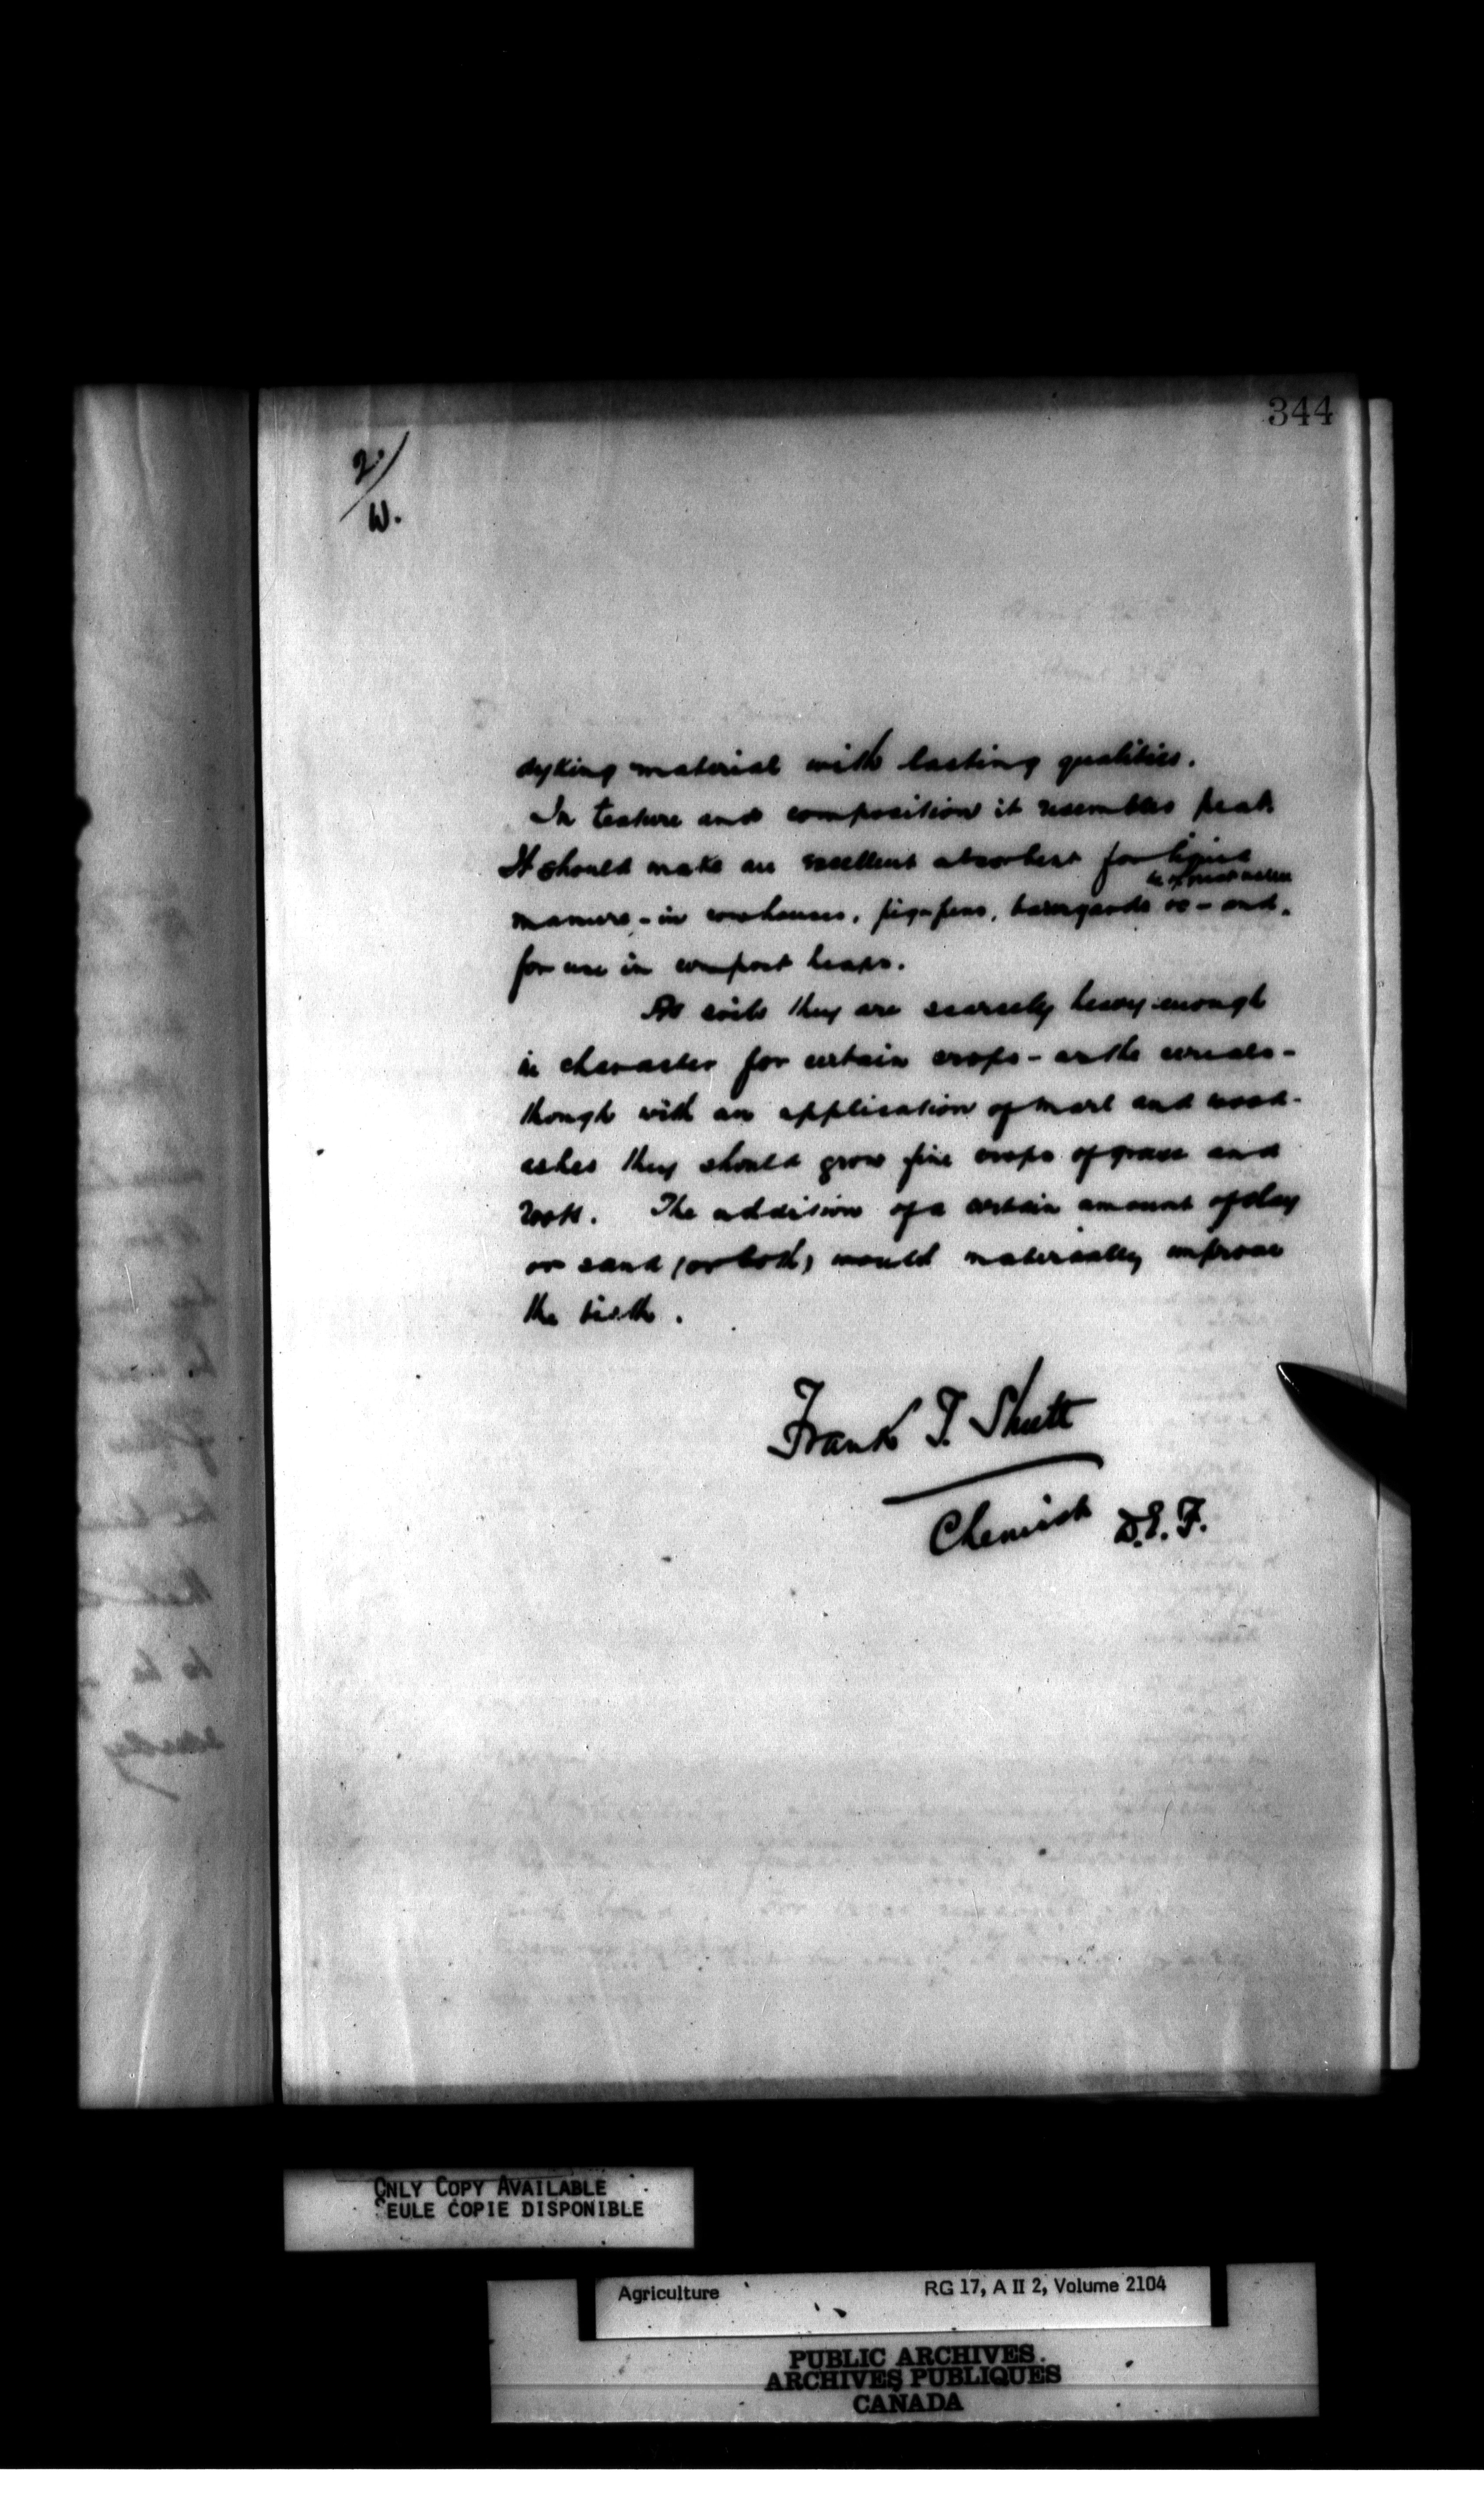 344
2/
W.
dyking material with lasting qualities.
In texture and composition it resembles peat
It should make an excellent absorbent for liquid
manure - in cowhouses, pig-pens, barnyards &c - and
for use in compost heaps.
As soils they are scarcely heavy enough
in character for certain crops - as the cereals -
though with an application of marl and wood-
ashes they should grow fine crops of grass and
roots. The addition of a certain amount of clay
or sand (or both) would materially improve
the tilth.
Frank T. Shutt
Chemist D.E.F.
ONLY COPY AVAILABLE
SEULE COPIE DISPONIBLE
Agriculture RG 17, A II 2, Volume 2104
PUBLIC ARCHIVES
ARCHIVES PUBLIQUES
CANADA